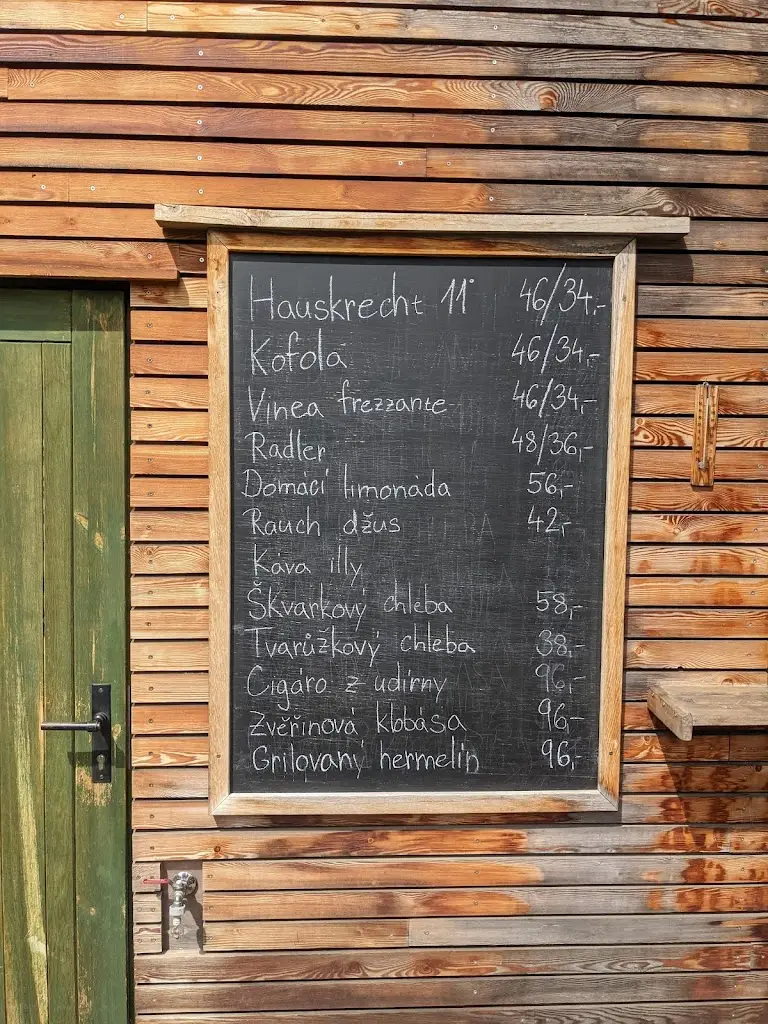 Hauskrecht 11° 46/34,-
Kofola 46/34,-
Vinea frezzante 46/34,-
Radler 48/36,-
Domácí limonáda 56,-
Rauch džus 42,-
Káva illy
Škvarkový chleba 58,-
Tvarůžkový chleba 38,-
Cigáro z udírny 96,-
Zvěřinová klobása 96,-
Grilovaný hermelín 96,-